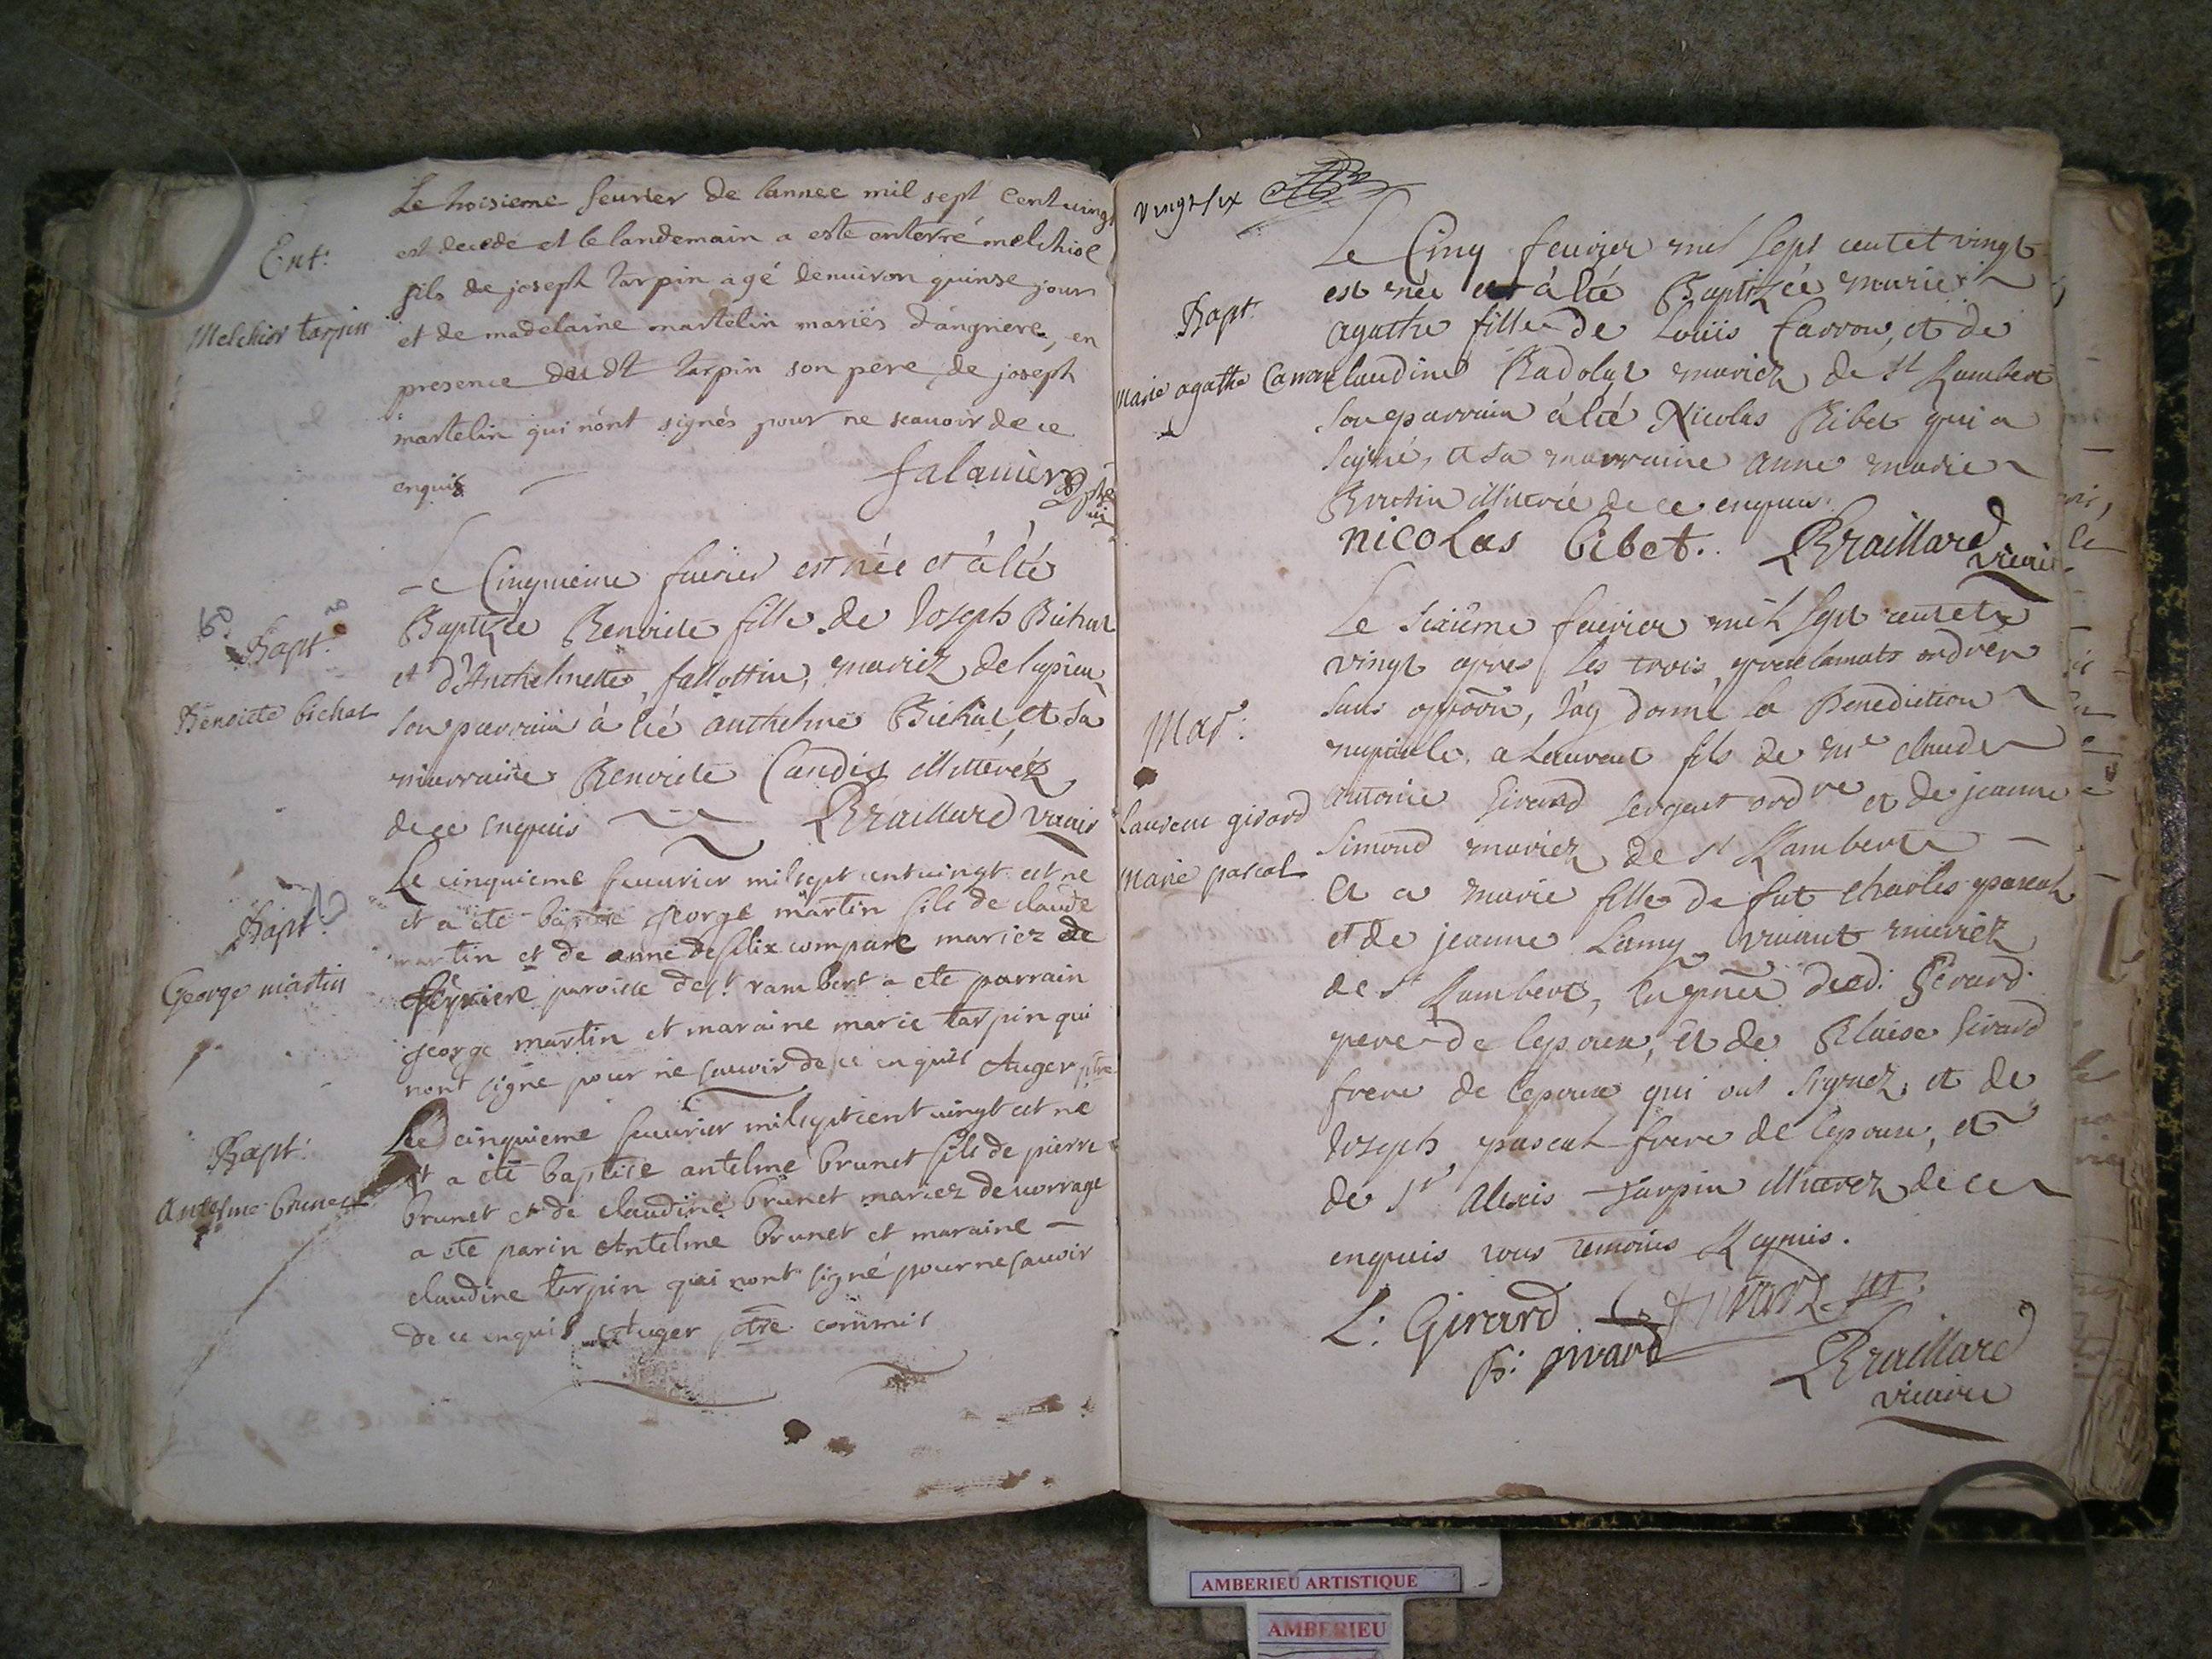 Ent:
Melchior tarpin
Le troisieme feurier de lannee mil sept Cent uingt
est decedé et le landemain a esté enterré melchior
fils de joseph tarpin agé denuiron quinse jours
et de madelaine martelin mariés d'angriere, en
presence dudt tarpin son pere, de joseph
martelin qui nónt signés pour ne scauoir de ce
enquis
falauier
Bapt.
Benoicte bichat
Le Cinquieme feurier est née et à été
Baptizée Benoicte fille de Joseph Bichat
et d'Anthelmette fallottin, mariez de
son parrain à été anthelme Bichat, et sa
marraine Benoicte Candis illitéréz
de ce enquis Braillard vicaire
Bapt.
George martin
Le cinquieme feuurier mil sept cent uingt est ne
et a ete baptise george martin fils de claude
martin et de anne de felix compare mariez de
paroisse de st rambert a ete parrain
george martin et maraine marie tarpin qui
nont signe pour ne sauoir de ce enquis Auger ptre
Bapt:
Antelme brunet
Le cinquieme feuurier mil sept cent uingt est ne
et a ete baptise antelme brunet fils de pierre
brunet et de claudine brunet mariez de uorrage
a ete parin Antelme brunet et maraine
claudine tarpin qui nont signé pour ne sauoir
de ce enquis Auger ptre commis
vingt six
Bapt.
Marie agathe Carron
Le Cinq feurier mil sept cent et vingt
est née et à été Baptizée marie
agathe fille de Loüis Carron, et de
claudine Radolat mariez de st Rambert
son parrain à été Nicolas Ribet qui a
signé, et sa marraine anne marie
illiterée de ce enquis.
nicolas Ribet. Braillard vicaire
Mar:
laurent girard
Marie pascal
Le sixieme feurier mil sept cent et
vingt apres les trois proclamats ordres
sans oppõon, j'ay donné la Benediction
nuptiale, a Laurent fils de me claude
antoine Girard sergent ordre et de jeanne
Simond mariez de st Rambert
et a marie fille de fut charles pascal
et de jeanne Lamy viuant mariez
de st Rambert, en pñce dud. Gerard
pere de lepoux, et de Blaise Girard
frere de lepoux qui ont signez, et de
Joseph pascal frere de lepouse, et
de sr Alexis tarpin illiterez de ce
enquis tous temoins Requis.
L: Girard
B: girard
Braillard
vicaire
AMBERIEU ARTISTIQUE
AMBERIEU